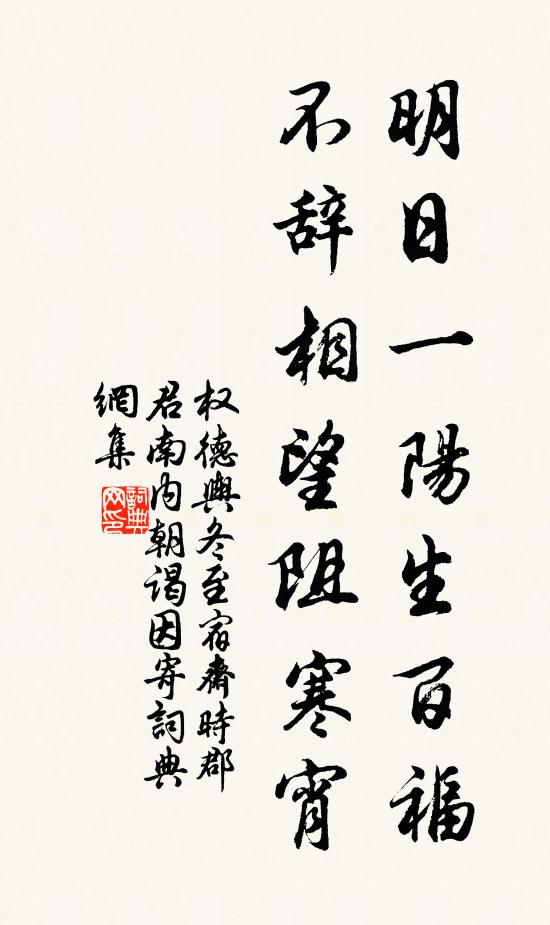 明日一陽生百福
不辞相望阻寒宵
权德輿冬至宿齋時郡
君南内朝謁因寄詞典
網集
詞典
网印